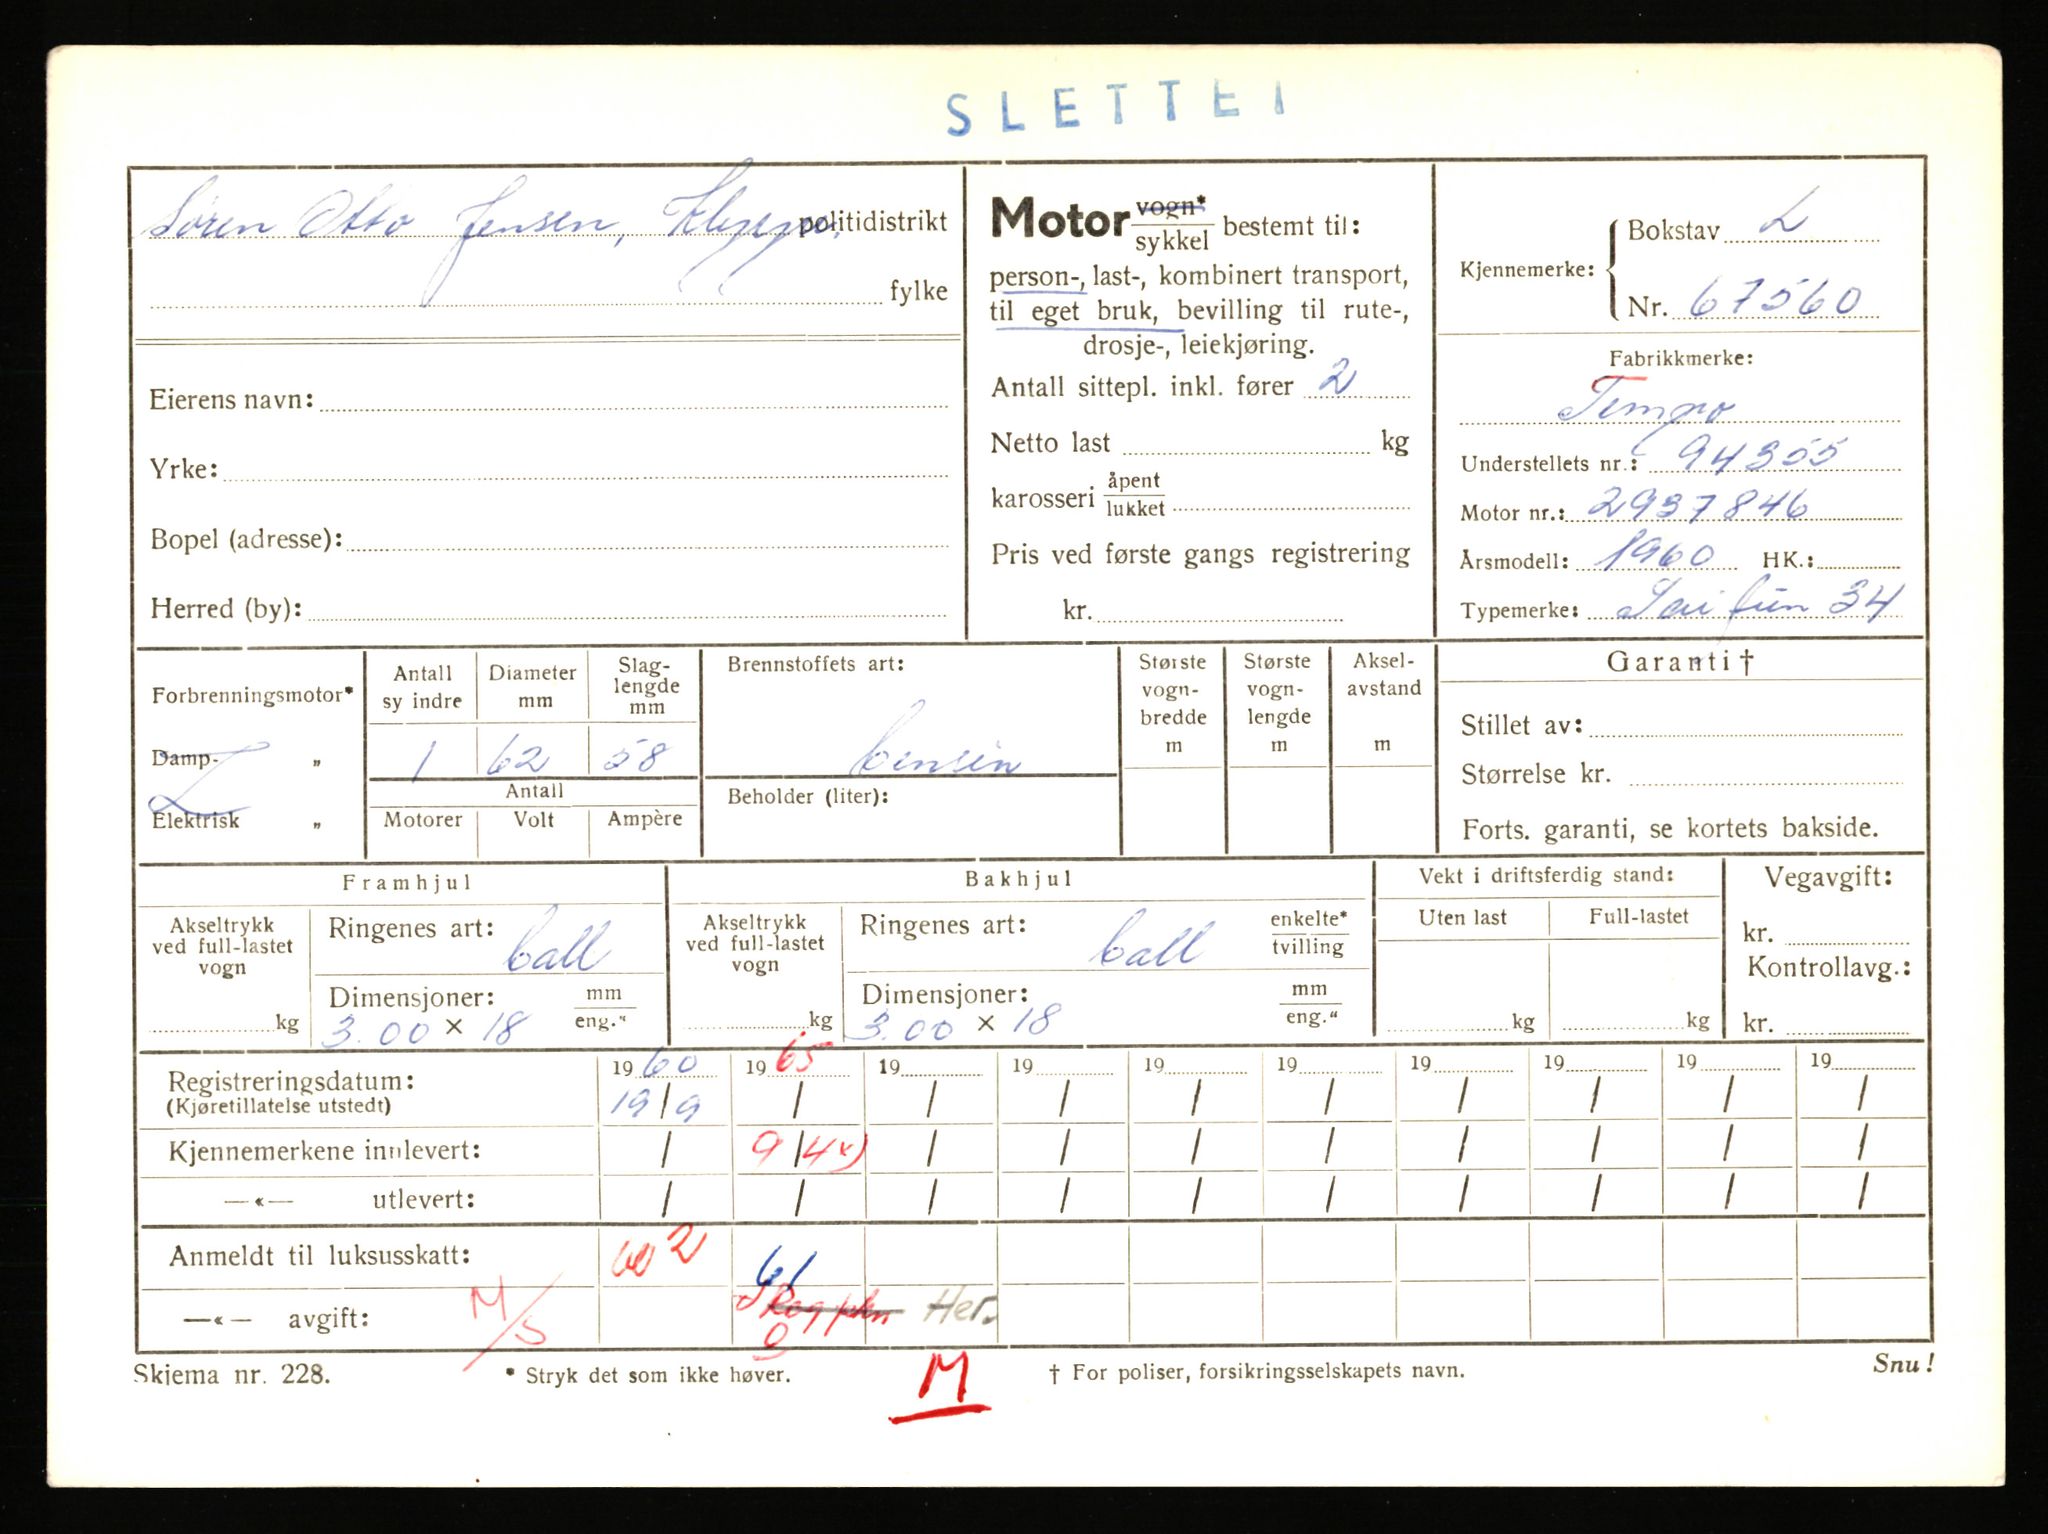 SLETTET
Søren Otto Jensen, Klepp. politidistrikt
fylke
Eierens navn:
Yrke:
Bopel (adresse):
Herred (by):
Motor vogn* / sykkel bestemt til:
person-, last-, kombinert transport,
til eget bruk, bevilling til rute-,
drosje-, leiekjøring.
Antall sittepl. inkl. fører 2
Netto last kg
karosseri åpent / lukket
Pris ved første gangs registrering
kr.
Kjennemerke: Bokstav L
Nr. 67560
Fabrikkmerke:
Tempo
Understellets nr.: 94355
Motor nr.: 2937846
Årsmodell: 1960 HK.:
Typemerke: Taifun 34
Forbrenningsmotor*
Damp- „
Elektrisk „
Antall sylindre
Diameter mm
Slaglengde mm
1 62 58
Antall
Motorer Volt Ampère
Brennstoffets art:
bensin
Beholder (liter):
Største vognbredde m
Største vognlengde m
Akselavstand m
Garanti †
Stillet av:
Størrelse kr.
Forts. garanti, se kortets bakside.
Framhjul
Akseltrykk ved full-lastet vogn
kg
Ringenes art: ball
Dimensjoner: mm / eng."
3.00 × 18
Bakhjul
Akseltrykk ved full-lastet vogn
kg
Ringenes art: ball enkelte* / tvilling
Dimensjoner: mm / eng."
3.00 × 18
Vekt i driftsferdig stand:
Uten last Full-lastet
kg kg
Vegavgift:
kr.
Kontrollavg.:
kr.
1960 1965 19 19 19 19 19 19 19 19
Registreringsdatum:
(Kjøretillatelse utstedt) 19/9 / / / / / / / / /
Kjennemerkene innlevert: / 9/4 x) / / / / / / / /
—«— utlevert: / / / / / / / / / /
Anmeldt til luksusskatt: 2 61
—«— avgift: M/S Her.
0
M
Skjema nr. 228.
* Stryk det som ikke høver.
† For poliser, forsikringsselskapets navn.
Snu!